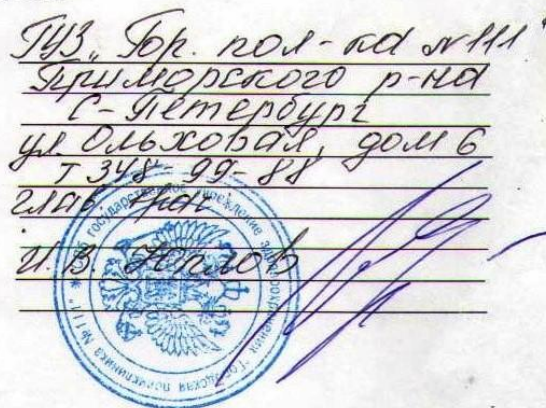 ГУЗ „Гор. пол-ка №111“
Приморского р-на
С-Петербург
ул. Ольховая, дом 6
т 348-99-88
глав. врач
И. В.
государственное учреждение здравоохранения "Городская поликлиника №111"